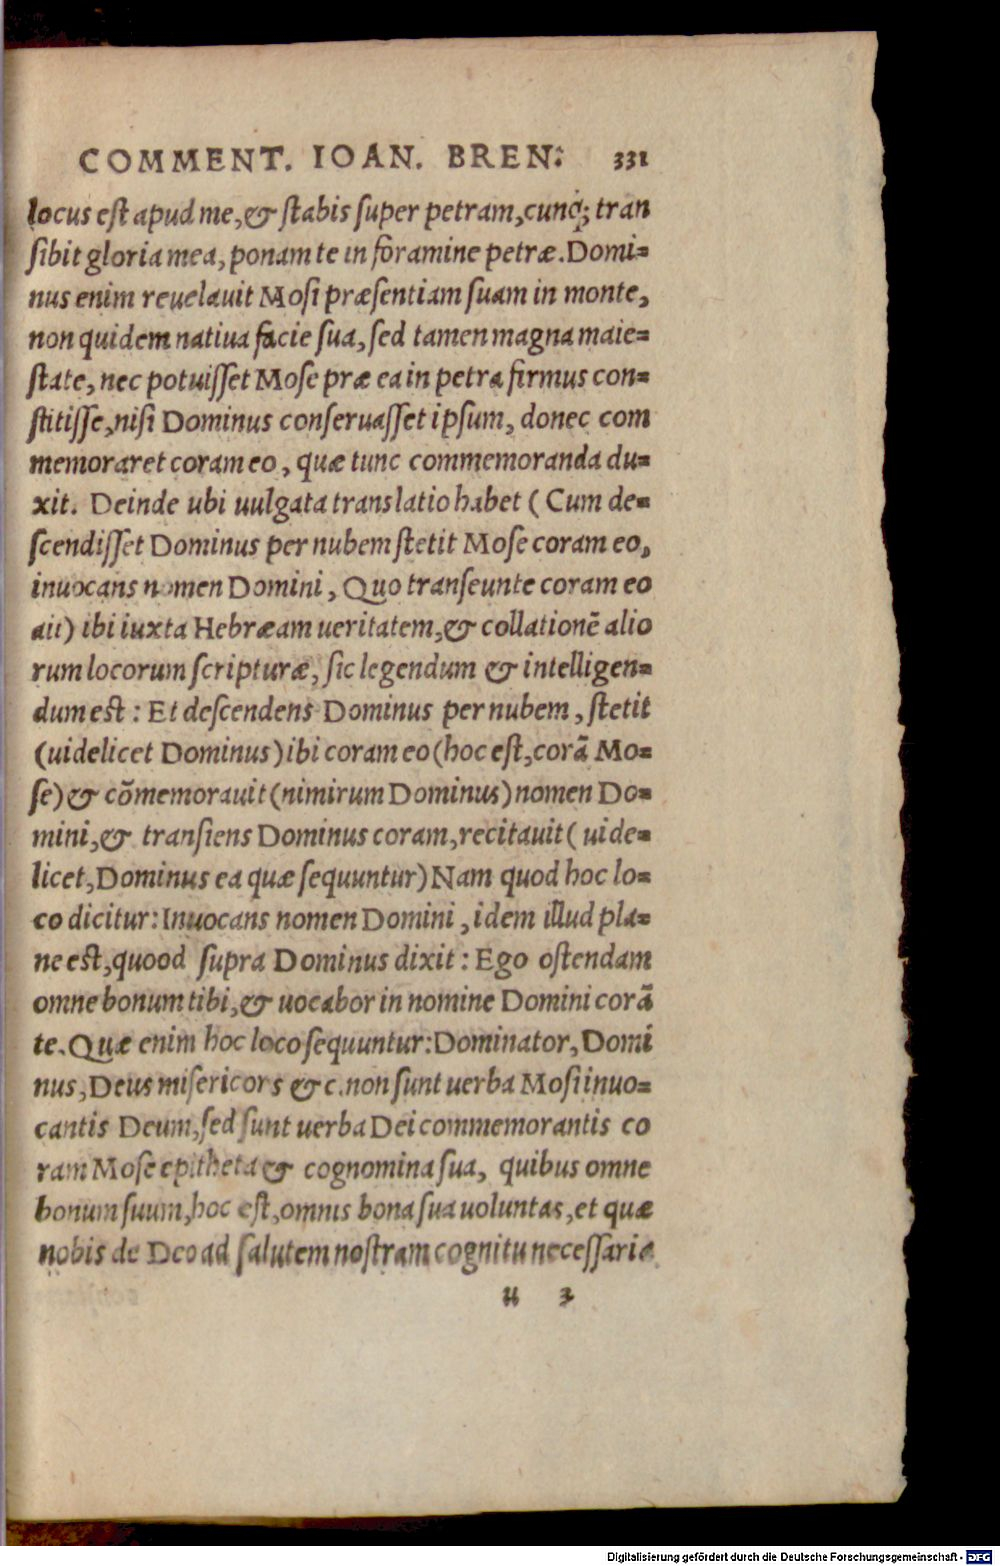 COMMENT. IOAN. BREN: 331
locus est apud me, & stabis super petram, cunq; tran
sibit gloria mea, ponam te in foramine petræ. Domi=
nus enim reuelauit Mosi præsentiam suam in monte,
non quidem natiua facie sua, sed tamen magna maie=
state, nec potuisset Mose præ ea in petra firmus con=
stitisse, nisi Dominus conseruasset ipsum, donec com
memoraret coram eo, quæ tunc commemoranda du=
xit. Deinde ubi uulgata translatio habet (Cum de=
scendisset Dominus per nubem stetit Mose coram eo,
inuocans nomen Domini, Quo transeunte coram eo
ait) ibi iuxta Hebræam ueritatem, & collationē alio
rum locorum scripturæ, sic legendum & intelligen=
dum est: Et descendens Dominus per nubem, stetit
(uidelicet Dominus) ibi coram eo (hoc est, corā Mo=
se) & cōmemorauit (nimirum Dominus) nomen Do=
mini, & transiens Dominus coram, recitauit (uide=
licet, Dominus ea quæ sequuntur) Nam quod hoc lo=
co dicitur: Inuocans nomen Domini, idem illud pla=
ne est, quood supra Dominus dixit: Ego ostendam
omne bonum tibi, & uocabor in nomine Domini corā
te. Quæ enim hoc loco sequuntur: Dominator, Domi
nus, Deus misericors &c. non sunt uerba Mosi inuo=
cantis Deum, sed sunt uerba Dei commemorantis co
ram Mose epitheta & cognomina sua, quibus omne
bonum suum, hoc est, omnis bona sua uoluntas, et quæ
nobis de Deo ad salutem nostram cognitu necessaria
u 3
Digitalisierung gefördert durch die Deutsche Forschungsgemeinschaft - DFG